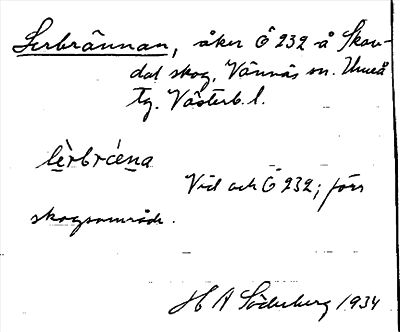 Lerbrännan, åker Ö 232 å Skav-
dal skog, Vännäs sn. Umeå
tg. Västerb. l.
lèrbréna
Vid och Ö 232; förr
skogsområde.
H A Söderberg 1934